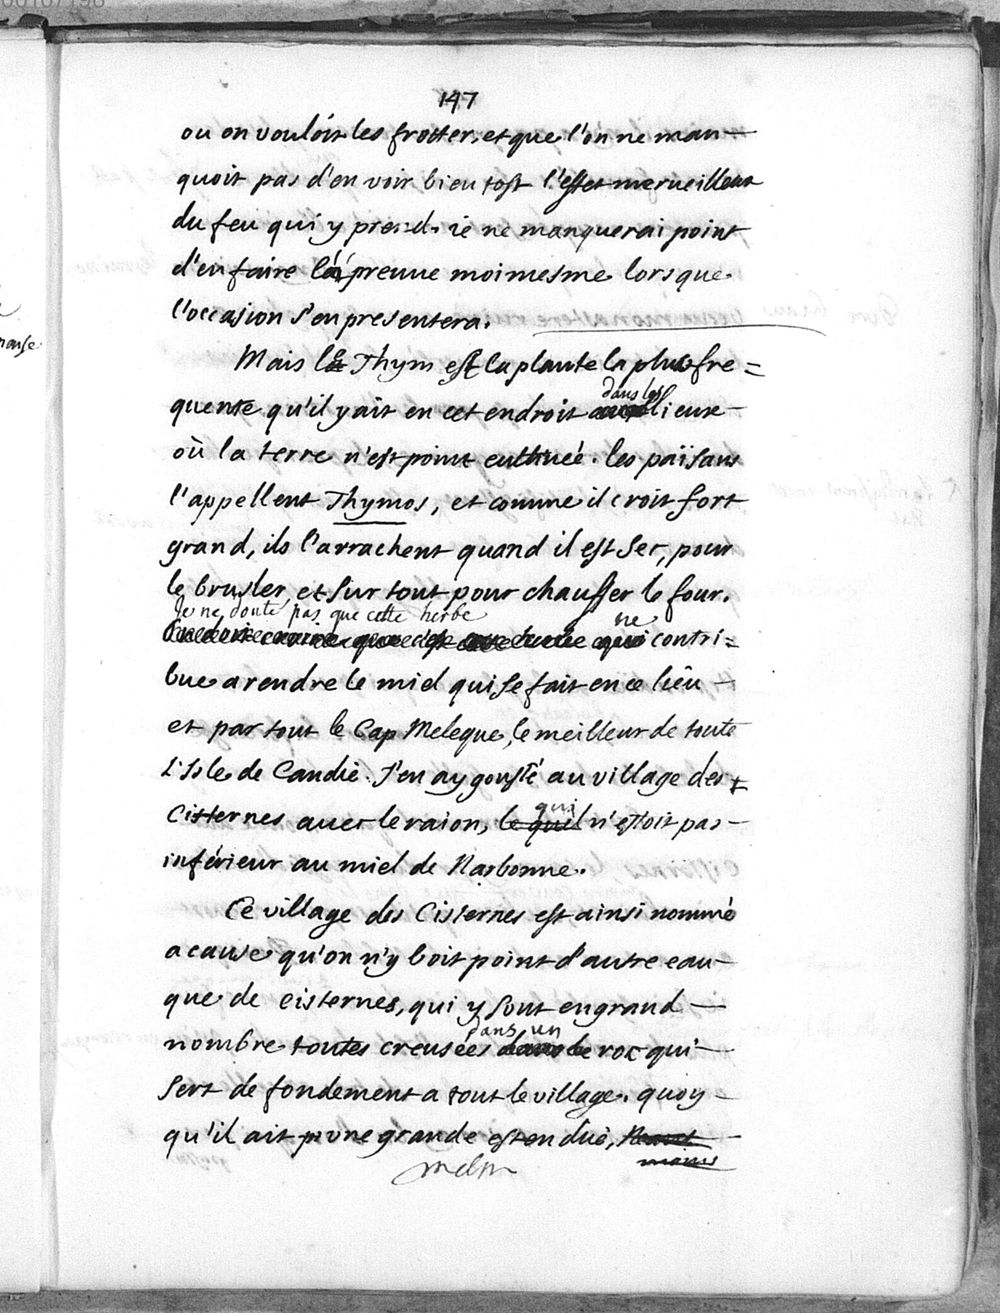 147
ou on vouloit les frotter, et que l'on ne man-
quoit pas d'en voir bien tost l'effet merveilleux
du feu qui y prend. ie ne manquerai point
d'en faire l'épreuue moimesme lorsque
l'occasion s'en presentera.
Mais le Thym est la plante la plus fre=
dans les
quente qu'il y ait en cet endroit lieux
où la terre n'est point cultiuée. les païsans
l'appellent Thymos, et comme il croit fort
grand, ils l'arrachent quand il est sec, pour
le brusler, et sur tout pour chauffer le four.
Je ne doute pas que cette herbe ne
contri=
bue a rendre le miel qui se fait en ce lieu
et par tout le Cap Meleque, le meilleur de toute
L'Isle de Candie. J'en ay gousté au village des
qui
Cisternes auec le raion, lequel n'estoit pas
inférieur au miel de Narbonne.
Ce village des Cisternes est ainsi nommé
a cause qu'on n'y boit point d'autre eau
que de cisternes, qui y sont en grand
dans un
nombre toutes creusées dans le roc qui
sert de fondement a tout le village. quoy-
qu'il ait une grande estenduë,
moins